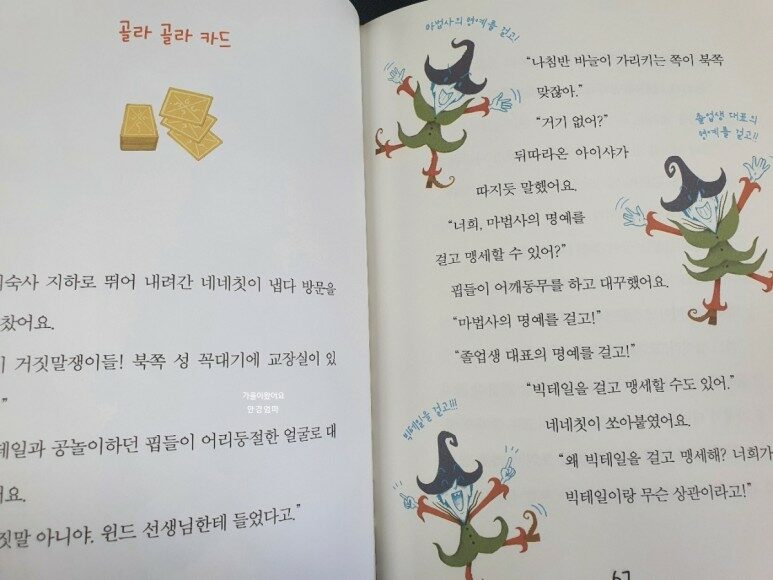 골라 골라 카드
숙사 지하로 뛰어 내려간 네네칫이 냅다 방문을
찼어요.
거짓말쟁이들! 북쪽 성 꼭대기에 교장실이 있
”
테일과 공놀이하던 핍들이 어리둥절한 얼굴로 대
어요.
짓말 아니야. 윈드 선생님한테 들었다고.”
가을이왔어요
안경엄마
마법사의 명예를 걸고!
“나침반 바늘이 가리키는 쪽이 북쪽
맞잖아.”
졸업생 대표의
명예를 걸고!!
“거기 없어?”
뒤따라온 아이샤가
따지듯 말했어요.
“너희, 마법사의 명예를
걸고 맹세할 수 있어?”
핍들이 어깨동무를 하고 대꾸했어요.
“마법사의 명예를 걸고!”
“졸업생 대표의 명예를 걸고!”
“빅테일을 걸고 맹세할 수도 있어.”
빅테일을 걸고!!!
네네칫이 쏘아붙였어요.
“왜 빅테일을 걸고 맹세해? 너희가
빅테일이랑 무슨 상관이라고!”
67